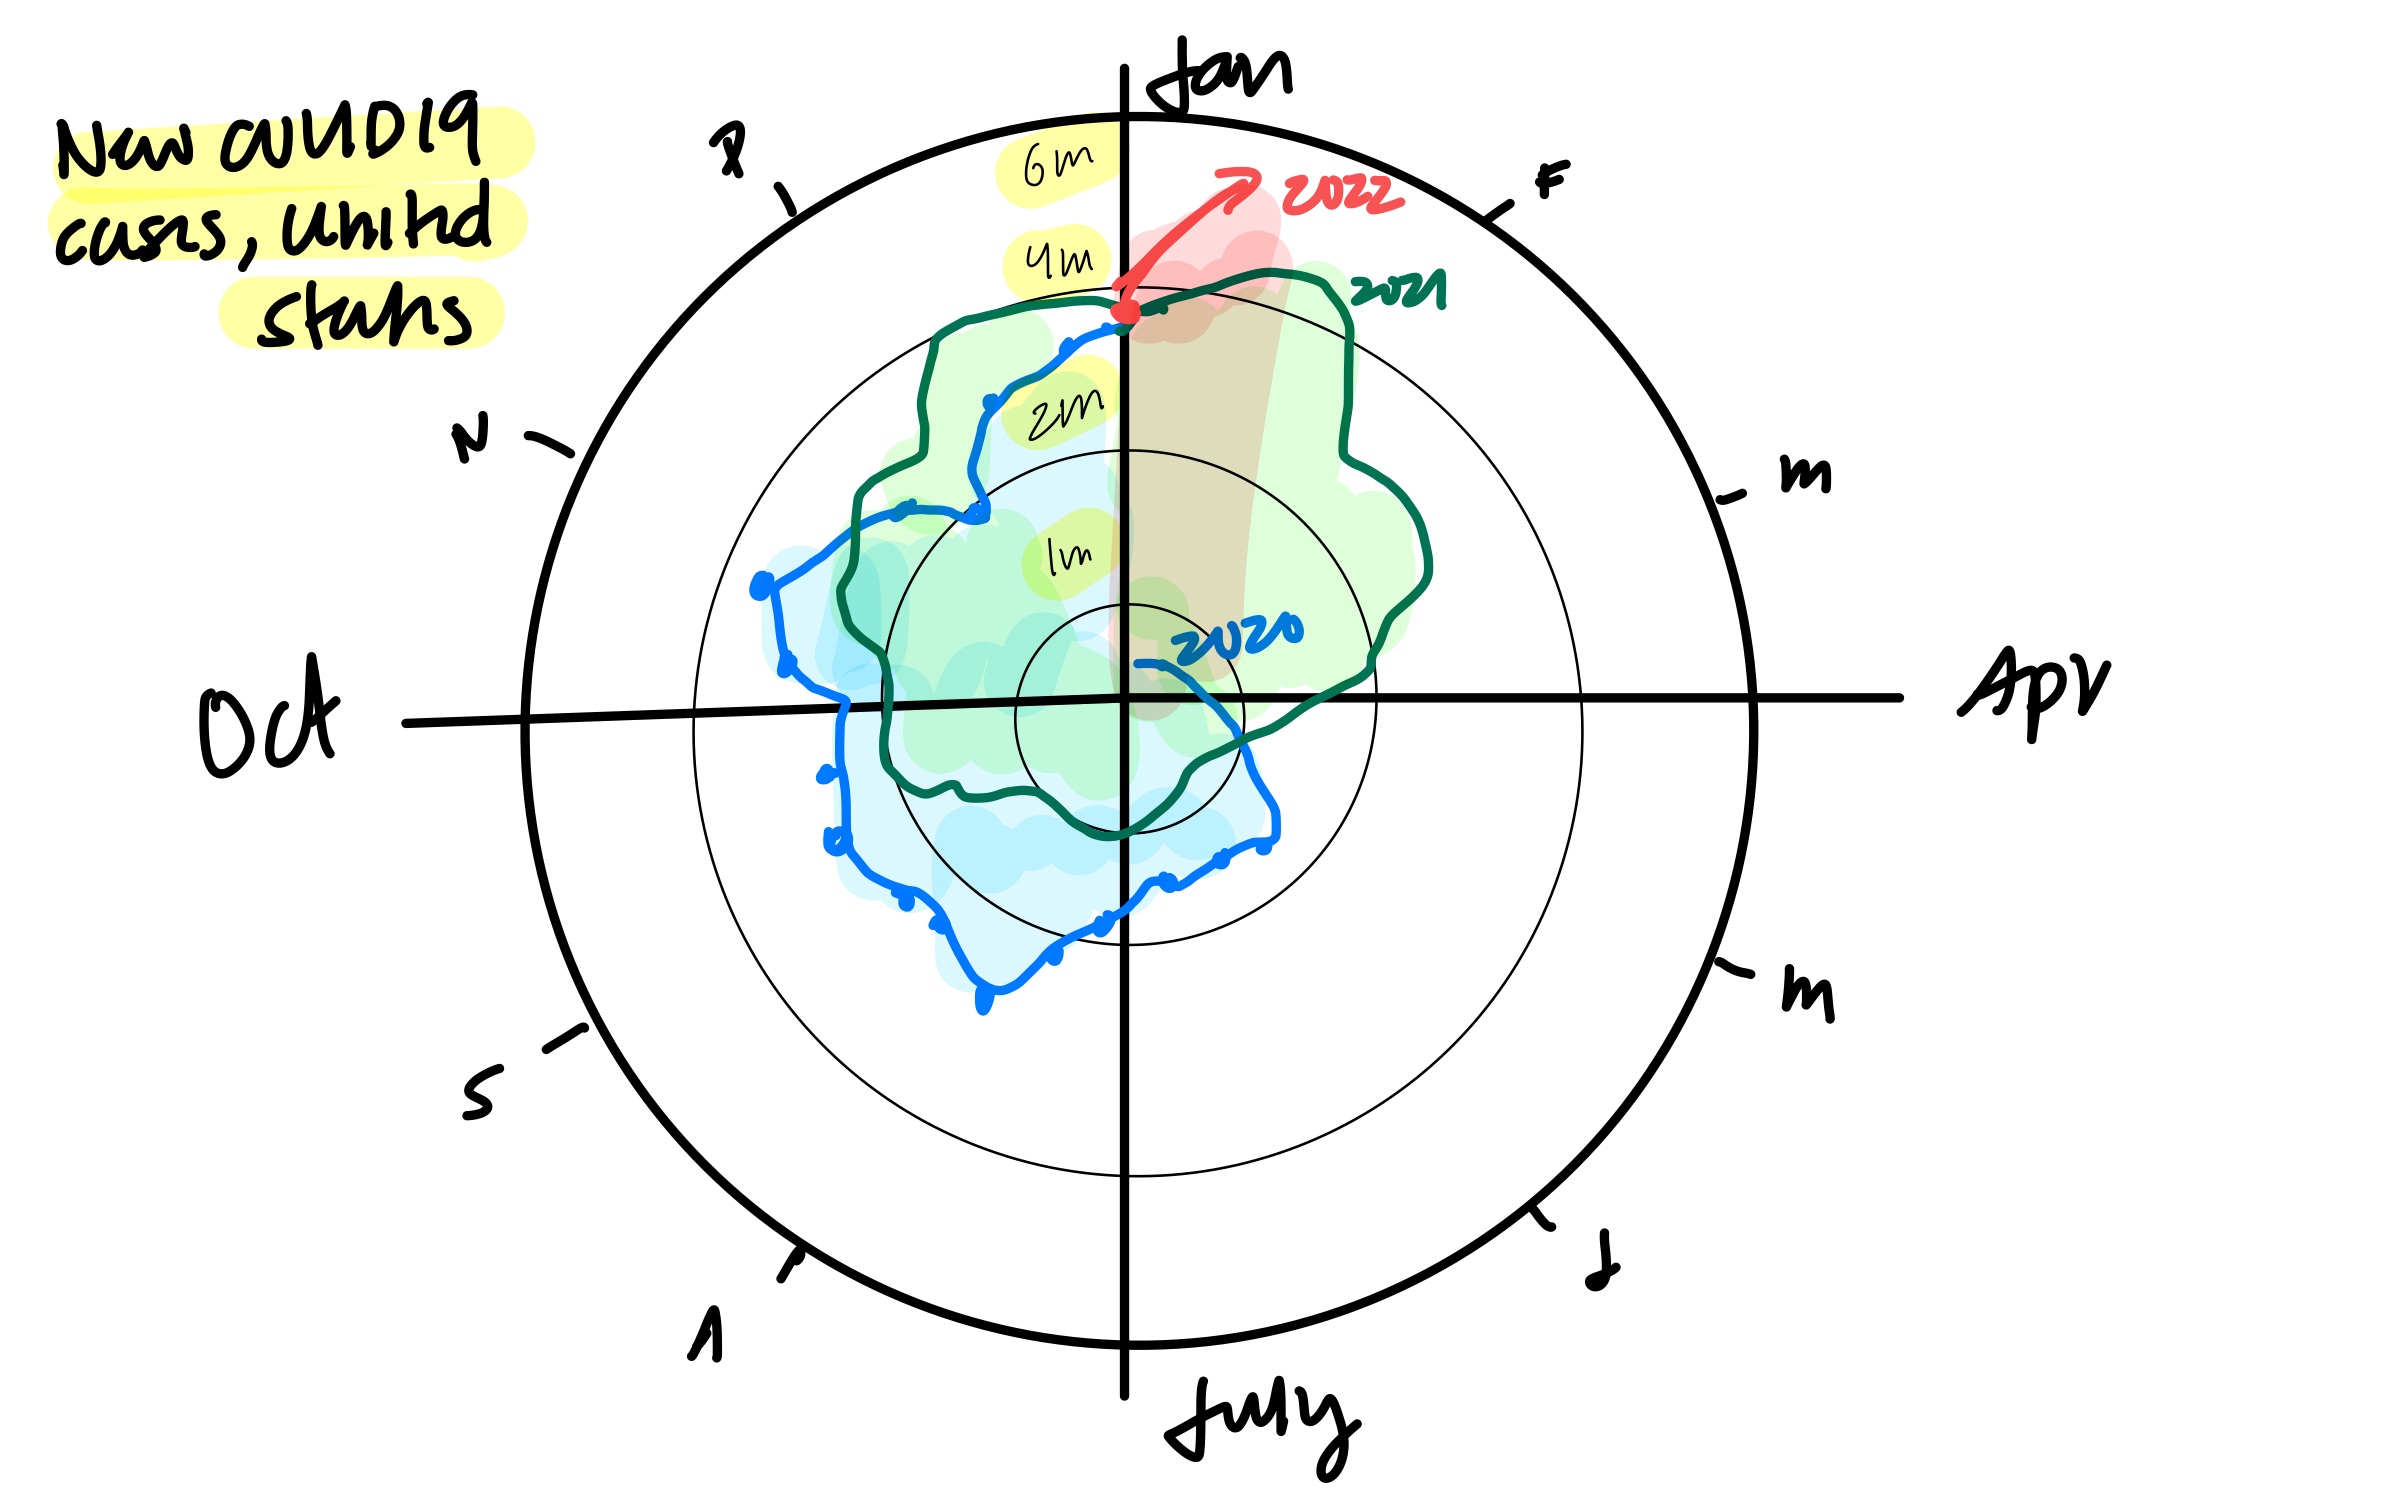 New COVID19
cases, United
States
Jan
F
m
Apr
m
J
July
A
S
Oct
N
6m
4m
2m
1m
2022
2021
2020